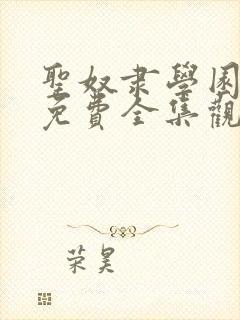 聖奴隶學園
免費全集觀
荣昊